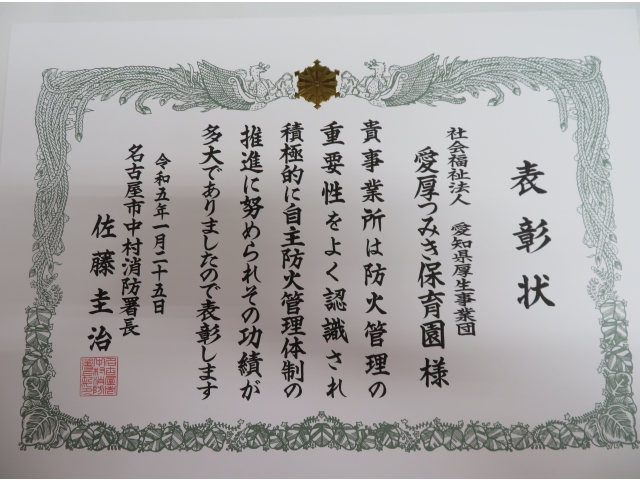 表彰状
社会福祉法人 愛知県厚生事業団
愛厚つみき保育園様
貴事業所は防火管理の
重要性をよく認識され
積極的に自主防火管理体制の
推進に努められその功績が
多大でありましたので表彰します
令和五年一月二十五日
名古屋市中村消防署長
佐藤圭治